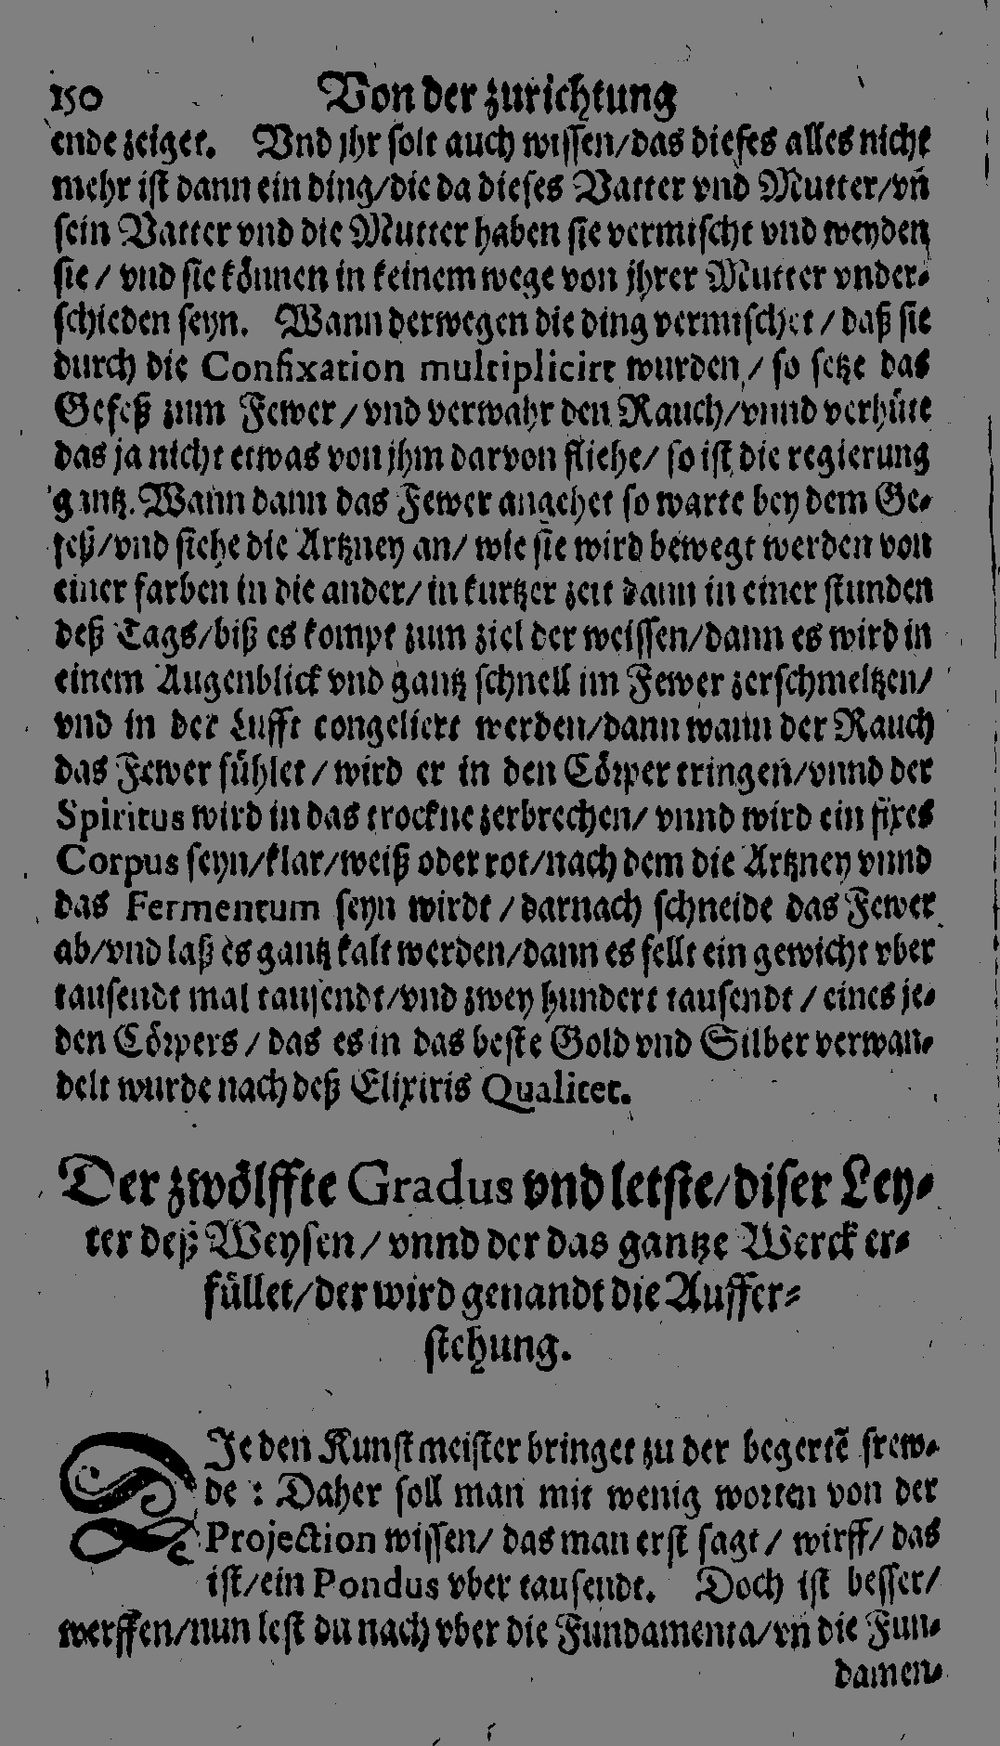 150 Von der zurichtung
ende zeiget. Vnd jhr solt auch wissen/das dieses alles nicht
mehr ist dann ein ding/die da dieses Vatter vnd Mutter/vñ
sein Vatter vnd die Mutter haben sie vermischt vnd weyden
sie / vnd sie können in keinem wege von jhrer Mutter vnder-
schieden seyn. Wann derwegen die ding vermischet / daß sie
durch die Confixation multiplicirt wurden / so setze das
Gefeß zum Fewer / vnd verwahr den Rauch/vnnd verhüte
das ja nicht etwas von jhm darvon fliehe/ so ist die regierung
gantz. Wann dann das Fewer angehet so warte bey dem Ge-
feß/vnd siehe die Artzney an/ wie sie wird bewegt werden von
einer farben in die ander/ in kurtzer zeit dann in einer stunden
deß Tags/biß es kompt zum ziel der weissen/dann es wird in
einem Augenblick vnd gantz schnell im Fewer zerschmeltzen/
vnd in der Lufft congeliert werden/dann wann der Rauch
das Fewer fühlet / wird er in den Cörper tringen/vnnd der
Spiritus wird in das trockne zerbrechen/ vnnd wird ein fixes
Corpus seyn/klar/weiß oder rot/nach dem die Artzney vnnd
das Fermentum seyn wirdt / darnach schneide das Fewer
ab/vnd laß es gantz kalt werden/dann es fellt ein gewicht vber
tausendt mal tausendt/vnd zwey hundert tausendt / eines je-
den Cörpers / das es in das beste Gold vnd Silber verwan-
delt wurde nach deß Elixiris Qualitet.
Der zwölffte Gradus vnd letste/diser Ley-
ter deß Weysen / vnnd der das gantze Werck er-
füllet/der wird genandt die Auffer-
stehung.
DJe den Kunstmeister bringet zu der begertẽ frew-
de : Daher soll man mit wenig worten von der
Projection wissen/ das man erst sagt / wirff/ das
ist/ein Pondus vber tausendt. Doch ist besser/
werffen/nun lest du nach vber die Fundamenta/vñ die Fun-
damen-